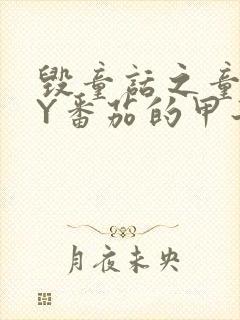 毁童话之童
Y番茄的甲
月夜未央